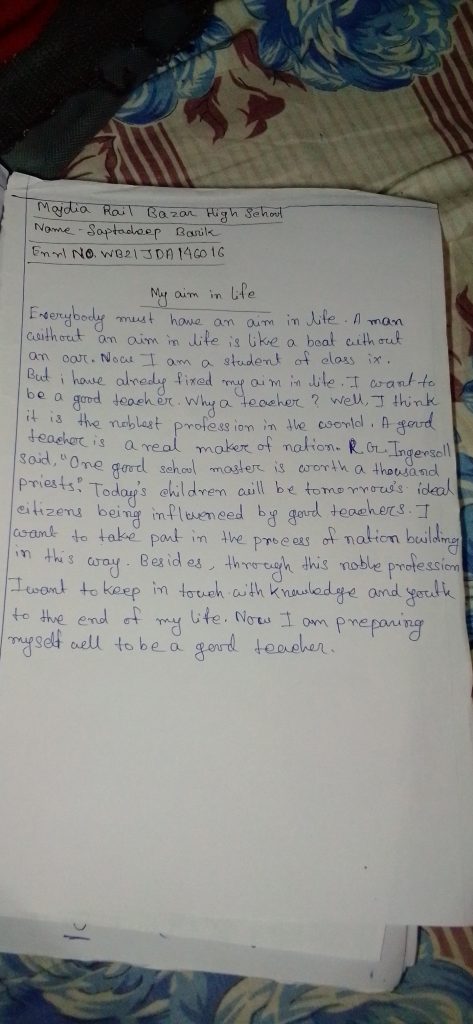 Majdia Rail Bazar High School
Name - Saptadeep Barik
Enrl NO. WB21JDA146016
My aim in life
Everybody must have an aim in life. A man
without an aim in life is like a boat without
an oar. Now I am a student of class ix.
But i have alredy fixed my aim in life. I want to
be a good teacher. Why a teacher? Well, I think
it is the noblest profession in the world. A good
teacher is a real maker of nation. R Gr. Ingersoll
said, "One good school master is worth a thousand
priests." Today's children will be tomorrow's ideal
citizens being influenced by good teachers. I
want to take part in the process of nation building
in this way. Besides, through this noble profession
I want to keep in touch with knowledge and youth
to the end of my life. Now I am preparing
myself well to be a good teacher.